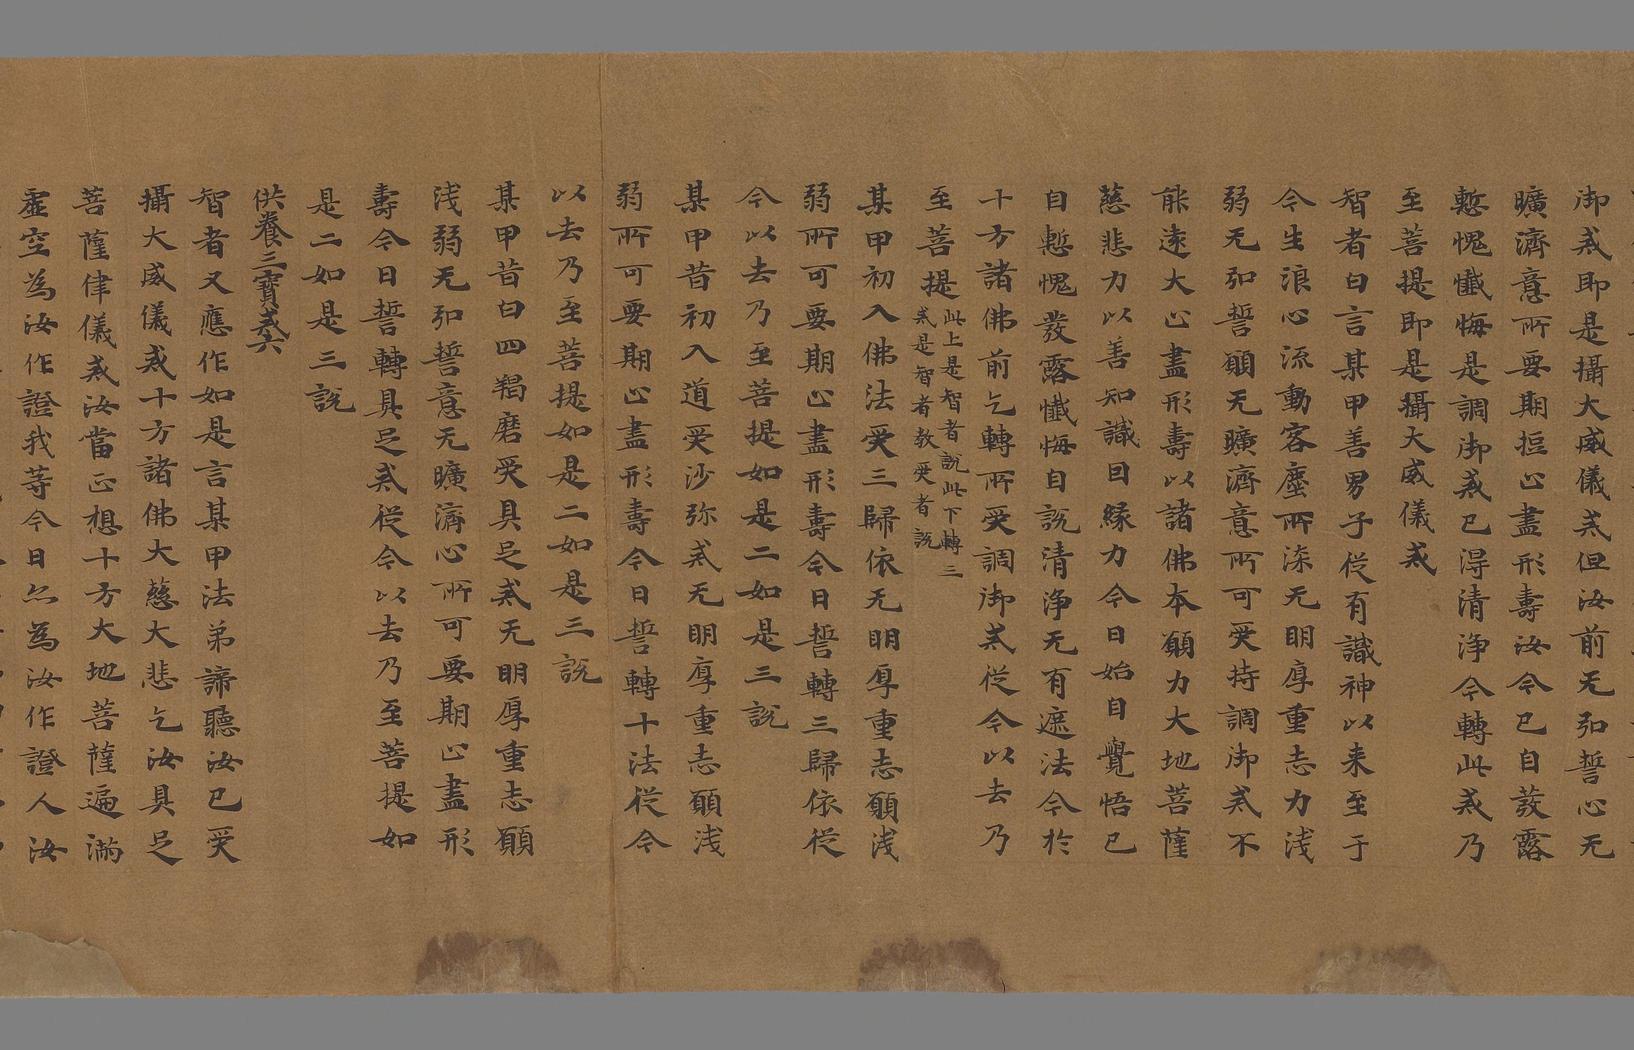 御戒即是攝大威儀戒但汝前无弘誓心无
曠濟意所要期㧾心盡形壽汝今已自發露
慙愧懺悔是調御戒已得清淨今轉此戒乃
至菩提即是攝大威儀戒
智者曰言某甲善男子從有識神以来至于
今生浪心流動客塵所染无明厚重志力浅
弱无弘誓願无曠濟意所可受持調御戒不
能遠大心盡形壽以諸佛本願力大地菩薩
慈悲力以善知識因緣力今日始自覺悟已
自慙愧發露懺悔自說清淨无有遮法今於
十方諸佛前乞轉所受調御戒從今以去乃
至菩提
此上是智者說此下轉三
戒是智者教受者說
某甲初入佛法受三歸依无明厚重志願浅
弱所可要期心盡形壽今日誓轉三歸依從
今以去乃至菩提如是二如是三說
某甲昔初入道受沙弥戒无明厚重志願浅
弱所可要期心盡形壽今日誓轉十法從今
以去乃至菩提如是二如是三說
某甲昔白四羯磨受具足戒无明厚重志願
浅弱无弘誓意无曠濟心所可要期心盡形
壽今日誓轉具足戒從今以去乃至菩提如
是二如是三說
供養三寶戒六
智者又應作如是言某甲法弟諦聽汝已受
攝大威儀戒十方諸佛大慈大悲乞汝具足
菩薩律儀戒汝當正想十方大地菩薩遍滿
虛空為汝作證我等今日亦為汝作證人汝